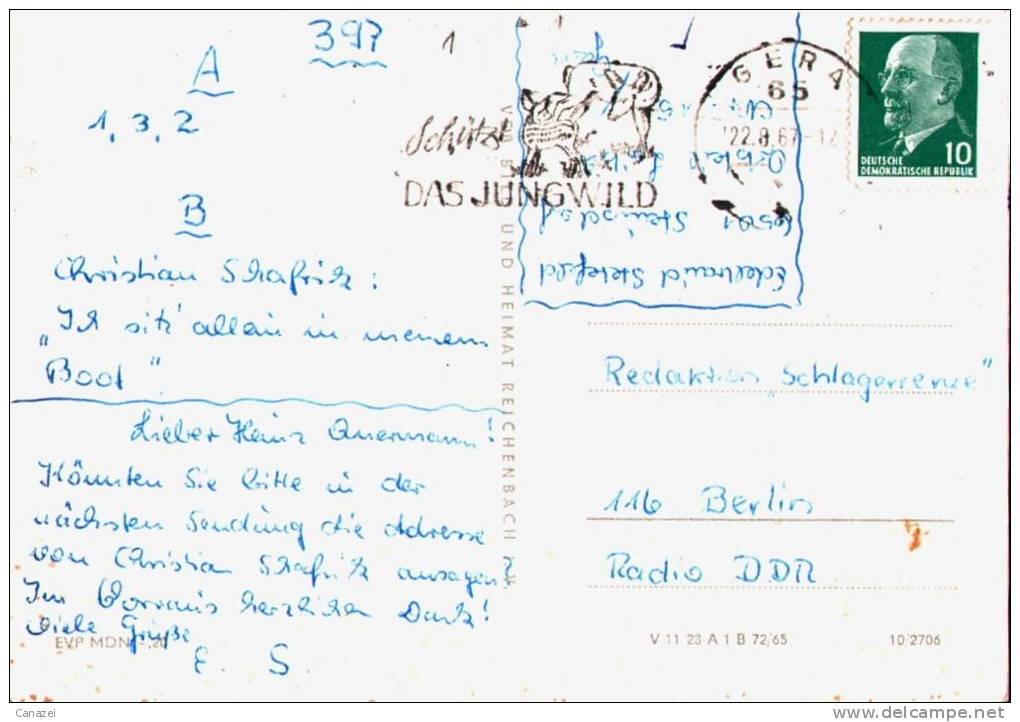 397
A
1, 3, 2
B
Christian Schafrik:
„Ich sitz' allein in meinem
Boot"
Lieber Heinz Quermann!
Könnten Sie bitte in der
nächsten Sendung die Adresse
von Christian Schafrik ansagen?
Im Vorraus herzlichen Dank!
Viele Grüße
E. S.
EVP MDN -,20
1
Schützt
DAS JUNGWILD
GERA
65
22.8.67-12
DEUTSCHE
DEMOKRATISCHE REPUBLIK
10
Edeltraud Steinfeld
6501
UND HEIMAT REICHENBACH
Redaktion „Schlagerrevue"
116 Berlin
Radio DDR
V 11 23 A 1 B 72/65
10/2706
Canazei
http://www.delcampe.net